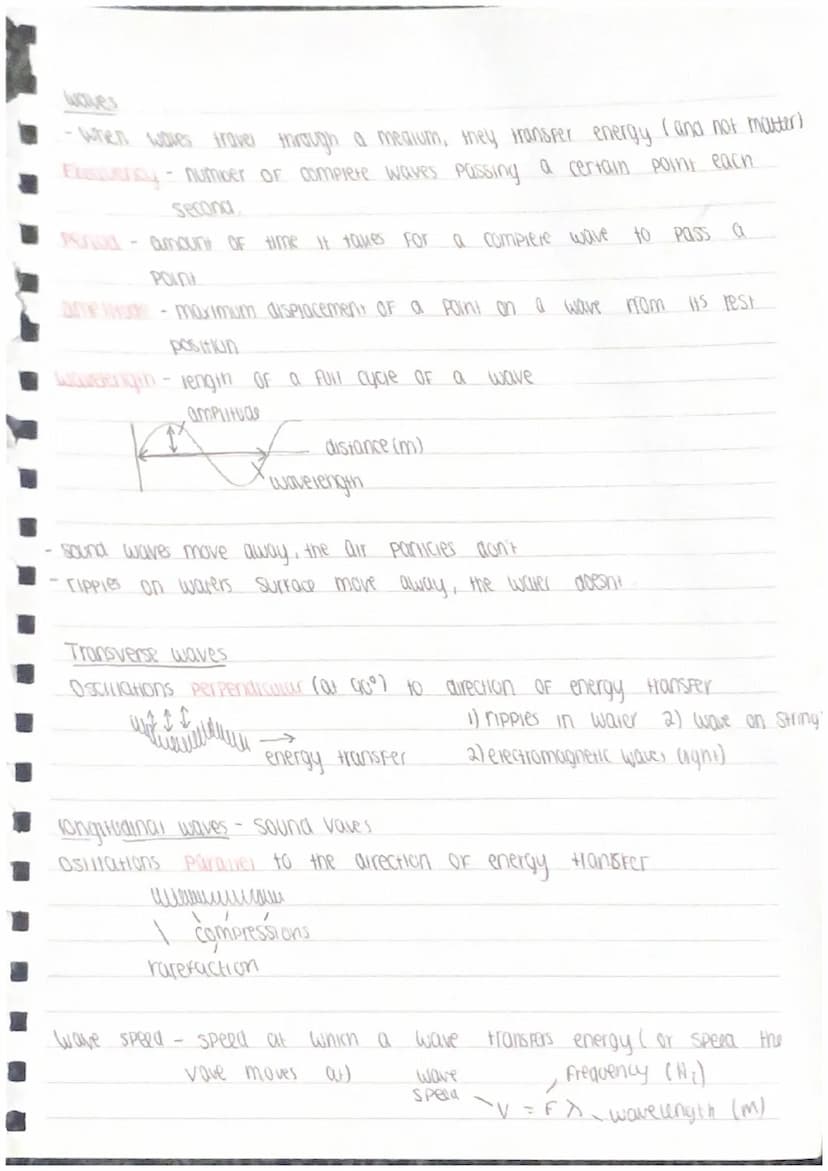 waves
- When waves travel through a medium, they transfer energy (and not matter)
Frequency - number of complete waves passing a certain point each
second.
Period - amount of time it takes for a complete wave to pass a
point
amplitude - maximum displacement of a point on a wave from its rest
position
wavelength - length of a full cycle of a wave
amplitude
distance (m)
wavelength
- sound waves move away, the air particles don't
- ripples on waters surface move away, the water doesnt
Transverse waves
Oscillations perpendicular (at 90°) to direction of energy transfer
1) ripples in water 2) wave on string
energy transfer 2) electromagnetic waves (light)
longitudinal waves - sound vaves
Osillations parallel to the direction of energy transfer
compressions
rarefaction
Wave speed - speed at which a wave transfers energy (or speed the
vave moves at)
wave speed
frequency (Hz)
V = F λ wavelength (m)